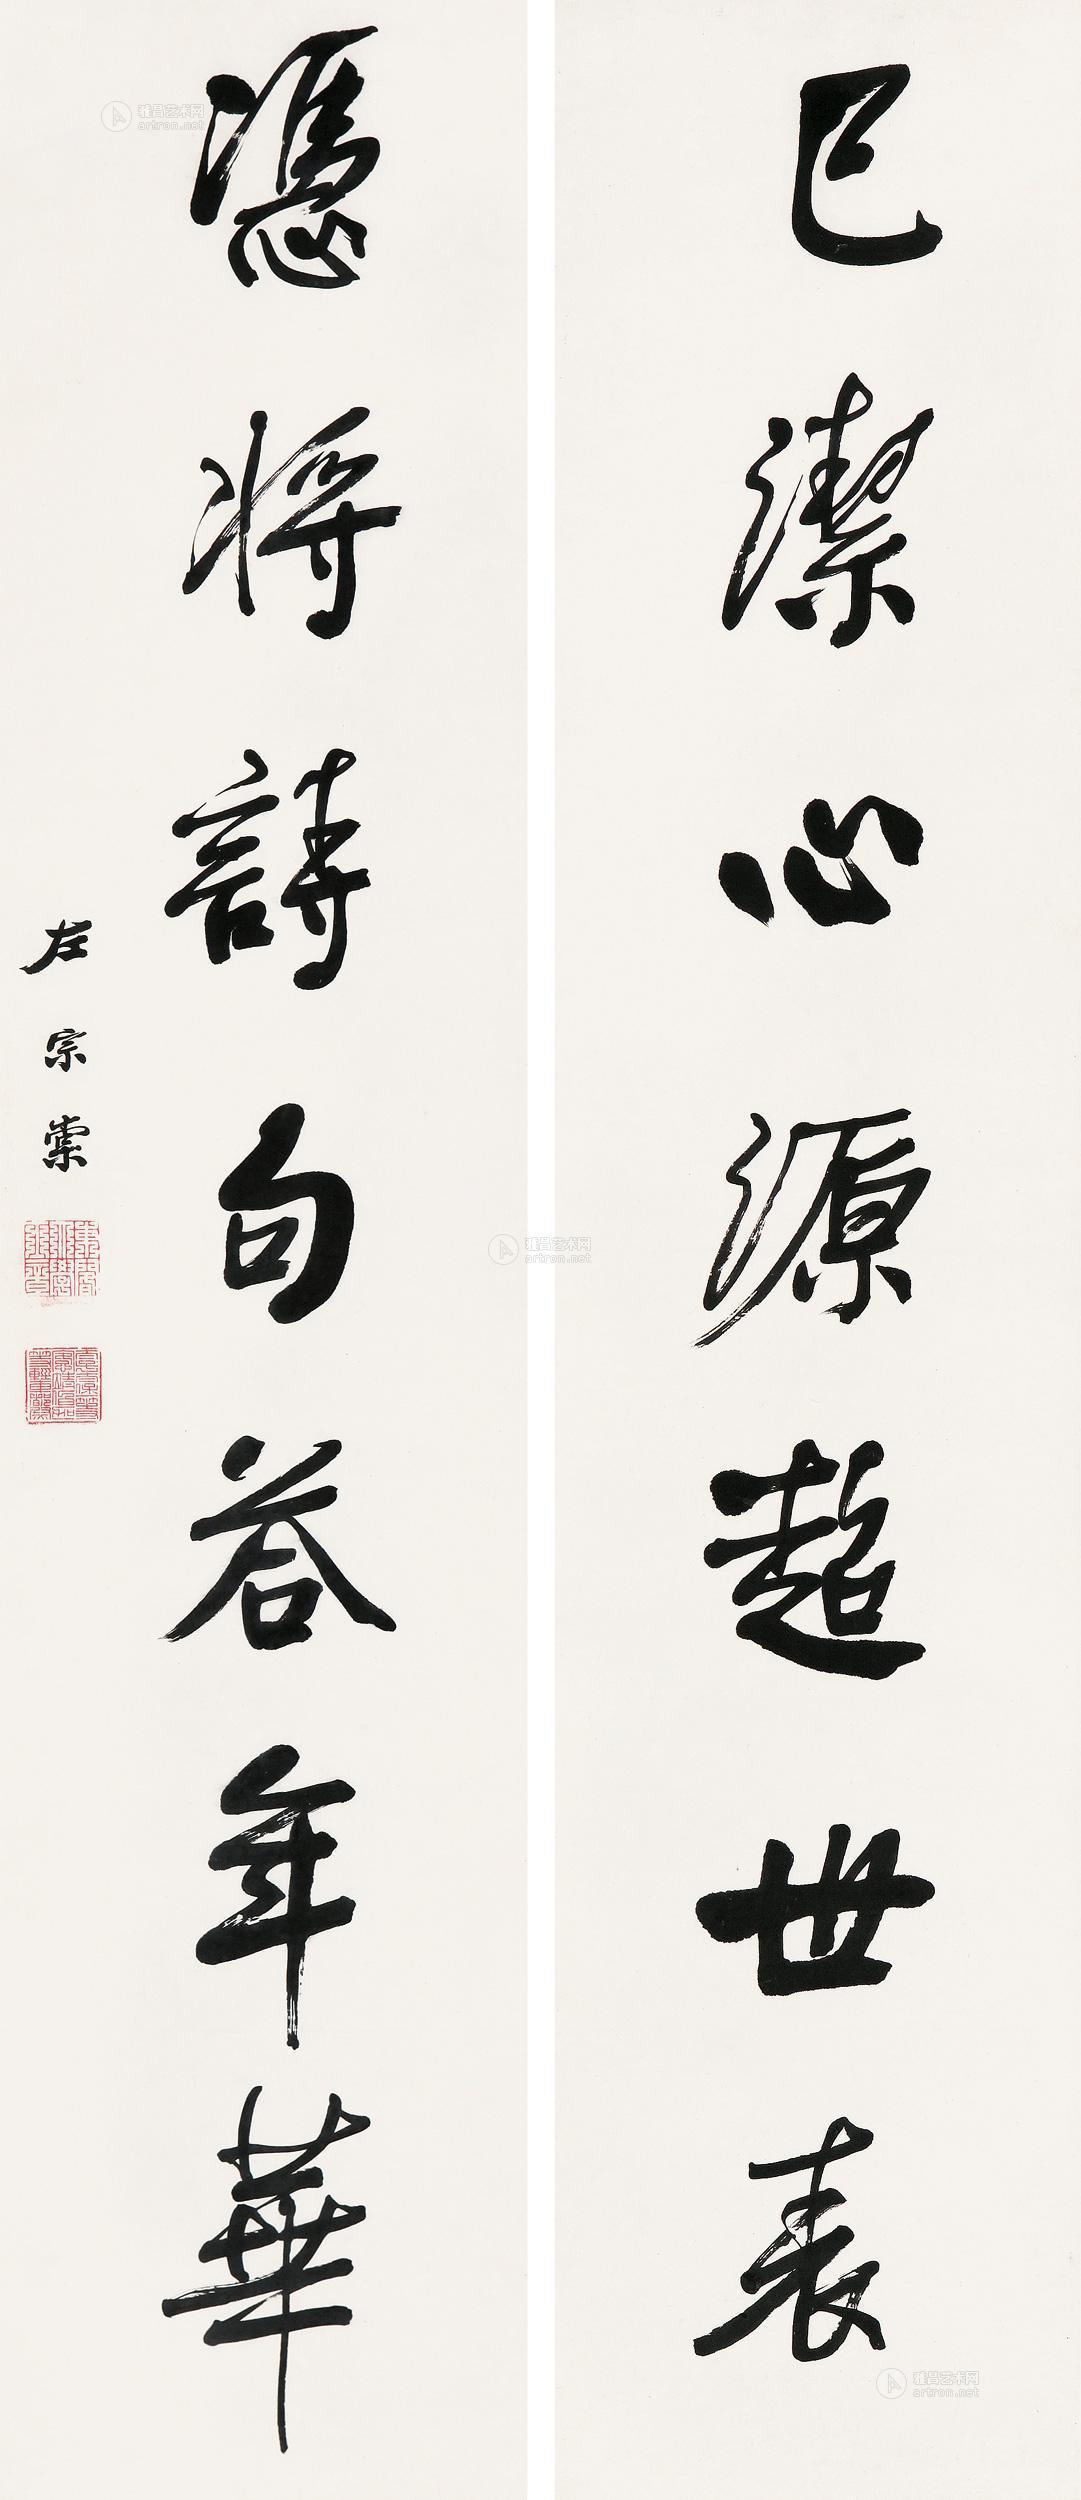 已潔心源超世表
憑將詩句荅年華
左宗棠
雅昌艺术网
artron.net
雅昌艺术网
artron.net
雅昌艺术网
artron.net